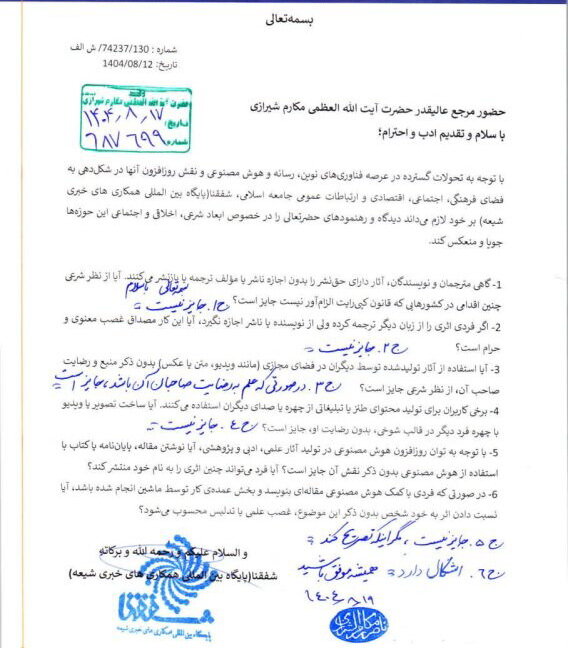 بسمه‌تعالی
شماره : 74237/130/ ش الف
تاریخ: 1404/08/12
حضرت آیت الله العظمی مکارم شیرازی
تاریخ: ۱۴۰۴٫۸٫۱۷
شماره ۶۸۷۶۹۹
حضور مرجع عالیقدر حضرت آیت الله العظمی مکارم شیرازی
با سلام و تقدیم ادب و احترام؛
با توجه به تحولات گسترده در عرصه فناوری‌های نوین، رسانه و هوش مصنوعی و نقش روزافزون آنها در شکل‌دهی به
فضای فرهنگی، اجتماعی، اقتصادی و ارتباطات عمومی جامعه اسلامی، شفقنا(پایگاه بین المللی همکاری های خبری
شیعه) بر خود لازم می‌داند دیدگاه و رهنمودهای حضرتعالی را در خصوص ابعاد شرعی، اخلاقی و اجتماعی این حوزه‌ها
جویا و منعکس کند.
1- گاهی مترجمان و نویسندگان، آثار دارای حق‌نشر را بدون اجازه ناشر یا مؤلف ترجمه یا بازنشر می‌کنند. آیا از نظر شرعی
بسمه تعالی باسلام
چنین اقدامی در کشورهایی که قانون کپی‌رایت الزام‌آور نیست جایز است؟ ج۱. جایز نیست
2- اگر فردی اثری را از زبان دیگر ترجمه کرده ولی از نویسنده یا ناشر اجازه نگیرد، آیا این کار مصداق غصب معنوی و
حرام است؟ ج۲. جایز نیست
3- آیا استفاده از آثار تولیدشده توسط دیگران در فضای مجازی (مانند ویدیو، متن یا عکس) بدون ذکر منبع و رضایت
صاحب آن، از نظر شرعی جایز است؟ ج۳. درصورتی که علم به رضایت صاحبان آن باشد، جایز است
4- برخی کاربران برای تولید محتوای طنز یا تبلیغاتی از چهره یا صدای دیگران استفاده می‌کنند. آیا ساخت تصویر یا ویدیو
با چهره فرد دیگر در قالب شوخی، بدون رضایت او، جایز است؟ ج۴. جایز نیست
5- با توجه به توان روزافزون هوش مصنوعی در تولید آثار علمی، ادبی و پژوهشی، آیا نوشتن مقاله، پایان‌نامه یا کتاب با
استفاده از هوش مصنوعی بدون ذکر نقش آن جایز است؟ آیا فرد می‌تواند چنین اثری را به نام خود منتشر کند؟
6- در صورتی که فردی با کمک هوش مصنوعی مقاله‌ای بنویسد و بخش عمده‌ی کار توسط ماشین انجام شده باشد، آیا
نسبت دادن اثر به خود شخص بدون ذکر این موضوع، غصب علمی یا تدلیس محسوب می‌شود؟
ج۵. جایز نیست، مگر اینکه تصریح کند
ج۶. اشکال دارد همیشه موفق باشید
۱۴۰۴٫۸٫۱۹
و السلام علیکم و رحمه الله و برکاته
شفقنا(پایگاه بین المللی همکاری های خبری شیعه)
شفقنا
پایگاه بین المللی همکاری های خبری شیعه
ناصر مکارم الشیرازی